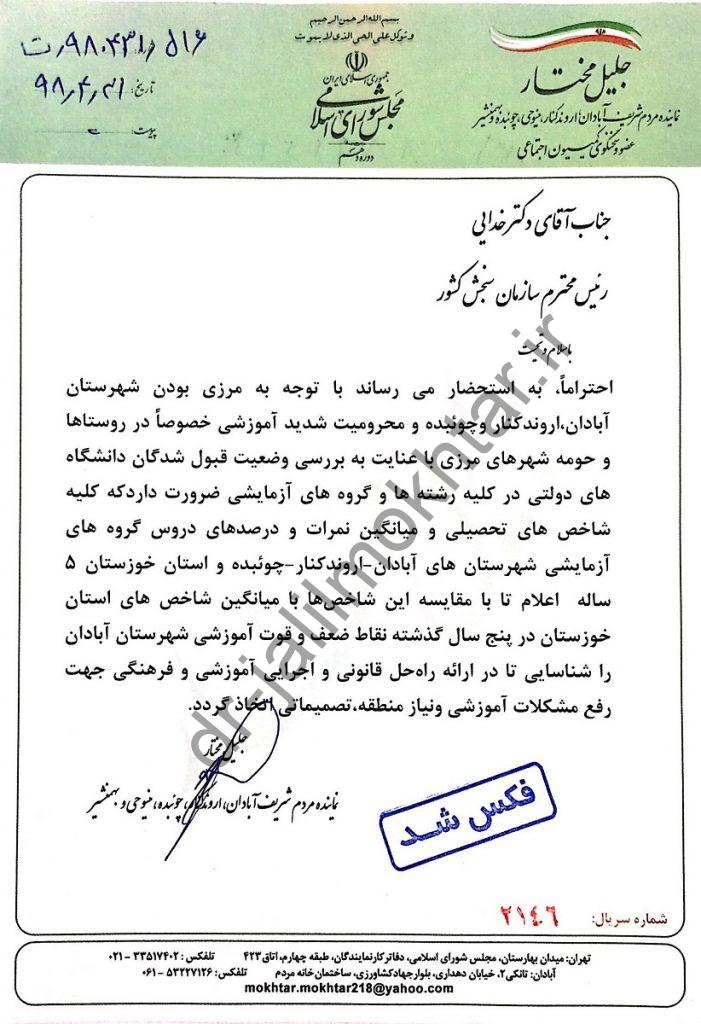 بسم الله الرحمن الرحیم
و توکل علی الحی الذی لا یموت
جمهوری اسلامی ایران
مجلس شورای اسلامی
دوره دهم
جلیل مختار
نماینده مردم شریف آبادان، اروندکنار، مینوحی، چوئبده و بهمنشیر
عضو و سخنگوی کمیسیون اجتماعی
۵۱۶/ر۹۸۰۴۳۱/ت
تاریخ: ۹۸,۴,۳۱
پیوست:
جناب آقای دکتر خدایی
رئیس محترم سازمان سنجش کشور
با سلام و تحیت
احتراماً، به استحضار می رساند با توجه به مرزی بودن شهرستان
آبادان،اروندکنار وچوئبده و محرومیت شدید آموزشی خصوصاً در روستاها
و حومه شهرهای مرزی با عنایت به بررسی وضعیت قبول شدگان دانشگاه
های دولتی در کلیه رشته ها و گروه های آزمایشی ضرورت داردکه کلیه
شاخص های تحصیلی و میانگین نمرات و درصدهای دروس گروه های
آزمایشی شهرستان های آبادان-اروندکنار-چوئبده و استان خوزستان ۵
ساله اعلام تا با مقایسه این شاخص‌ها با میانگین شاخص های استان
خوزستان در پنج سال گذشته نقاط ضعف و قوت آموزشی شهرستان آبادان
را شناسایی تا در ارائه راه‌حل قانونی و اجرایی آموزشی و فرهنگی جهت
رفع مشکلات آموزشی ونیاز منطقه،تصمیماتی اتخاذ گردد.
جلیل مختار
نماینده مردم شریف آبادان، اروندکنار، چوئبده، مینوحی و بهمنشیر
فکس شد
شماره سریال: ۲۱۴۶
تهران: میدان بهارستان، مجلس شورای اسلامی، دفاتر کار نمایندگان، طبقه چهارم، اتاق ۴۲۳ تلفکس: ۳۳۵۱۷۴۰۲ - ۰۲۱
آبادان: تانکی۲، خیابان دهداری، بلوار جهاد کشاورزی، ساختمان خانه مردم تلفکس: ۵۳۲۲۷۱۲۶ - ۰۶۱
mokhtar.mokhtar218@yahoo.com
dr-jalilmokhtar.ir